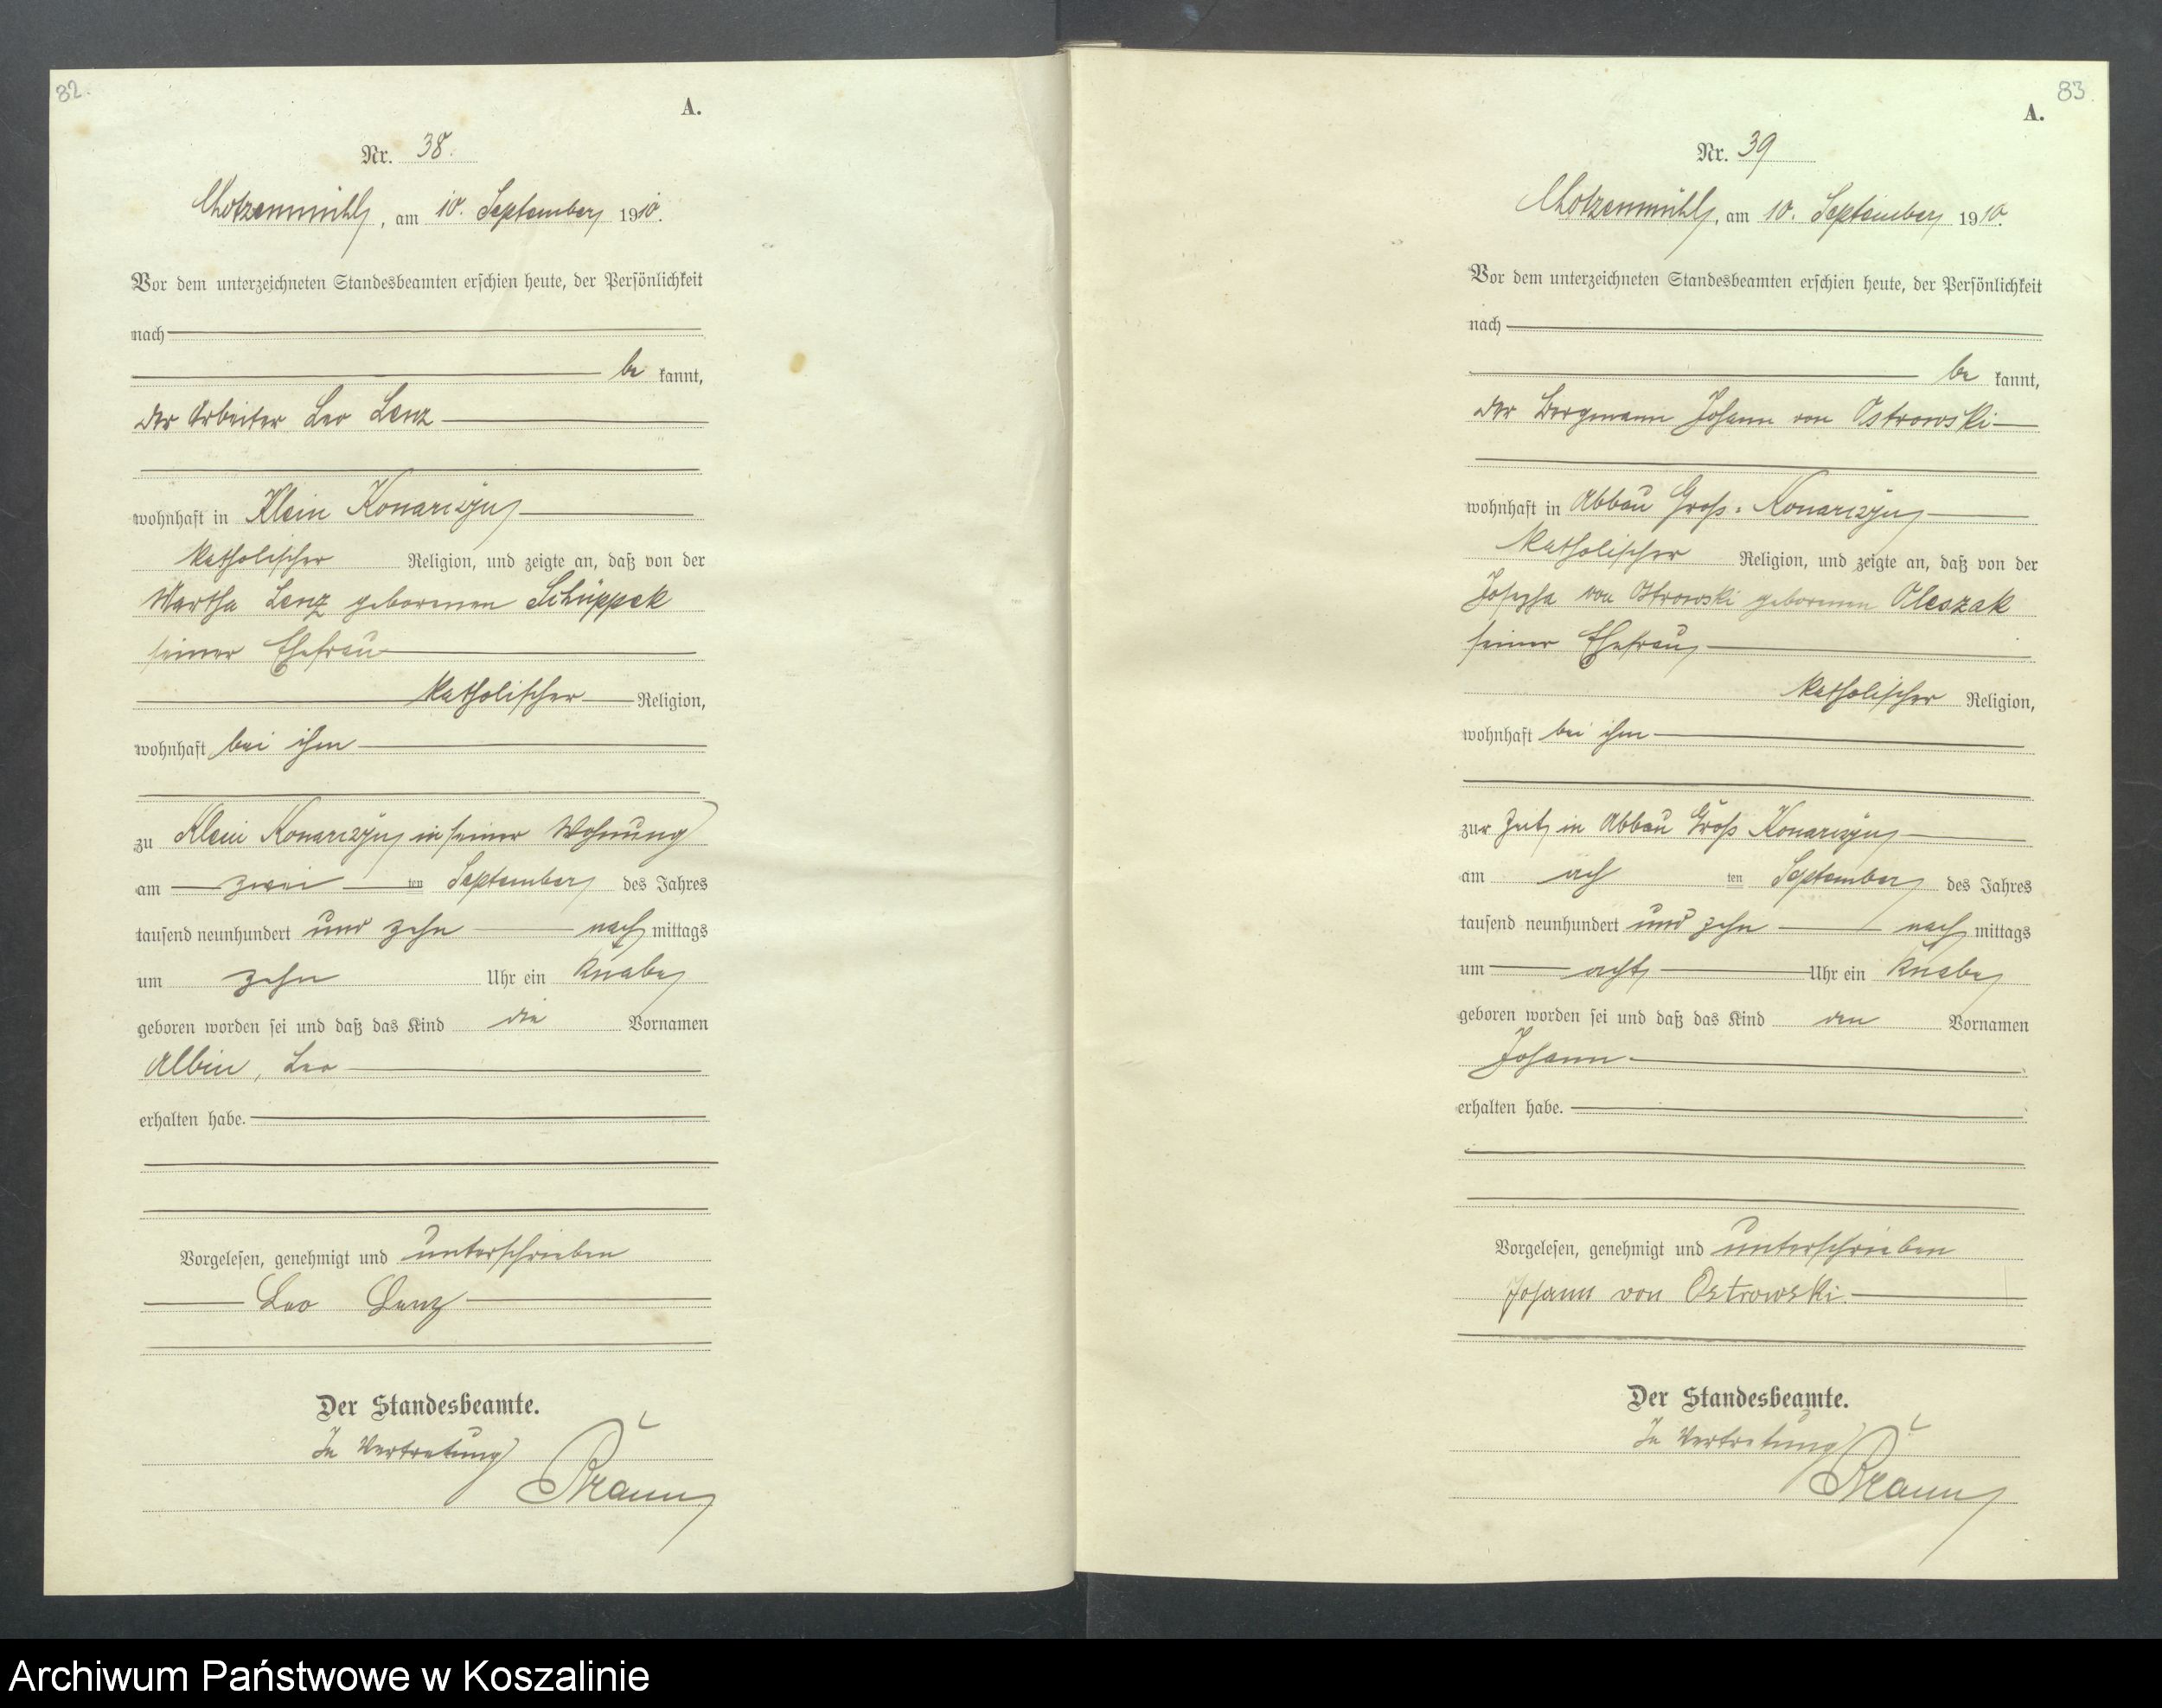 82.
A.
Nr. 38.
Chotzenmühl, am 10. September 1910.
Vor dem unterzeichneten Standesbeamten erschien heute, der Persönlichkeit
nach
be kannt,
der Arbeiter Leo Lenz
wohnhaft in Klein Konarczyn
katholischer Religion, und zeigte an, daß von der
Martha Lenz geborenen Schüppek
seiner Ehefrau
katholischer Religion,
wohnhaft bei ihm
zu Klein Konarczyn in seiner Wohnung
am zwei ten September des Jahres
tausend neunhundert und zehn nach mittags
um zehn Uhr ein Knabe
geboren worden sei und daß das Kind die Vornamen
Albin, Leo
erhalten habe.
Vorgelesen, genehmigt und unterschrieben
Leo Lenz
Der Standesbeamte.
In Vertretung
83.
A.
Nr. 39
Chotzenmühl, am 10. September 1910.
Vor dem unterzeichneten Standesbeamten erschien heute, der Persönlichkeit
nach
be kannt,
der Bergmann Johann von Ostrowski
wohnhaft in Abbau Groß-Konarczyn
katholischer Religion, und zeigte an, daß von der
Josepha von Ostrowski geborenen Oleszak
seiner Ehefrau
katholischer Religion,
wohnhaft bei ihm
zur Zeit in Abbau Groß Konarczyn
am ach ten September des Jahres
tausend neunhundert und zehn nach mittags
um acht Uhr ein Knabe
geboren worden sei und daß das Kind den Vornamen
Johann
erhalten habe.
Vorgelesen, genehmigt und unterschrieben
Johann von Ostrowski.
Der Standesbeamte.
In Vertretung
Archiwum Państwowe w Koszalinie